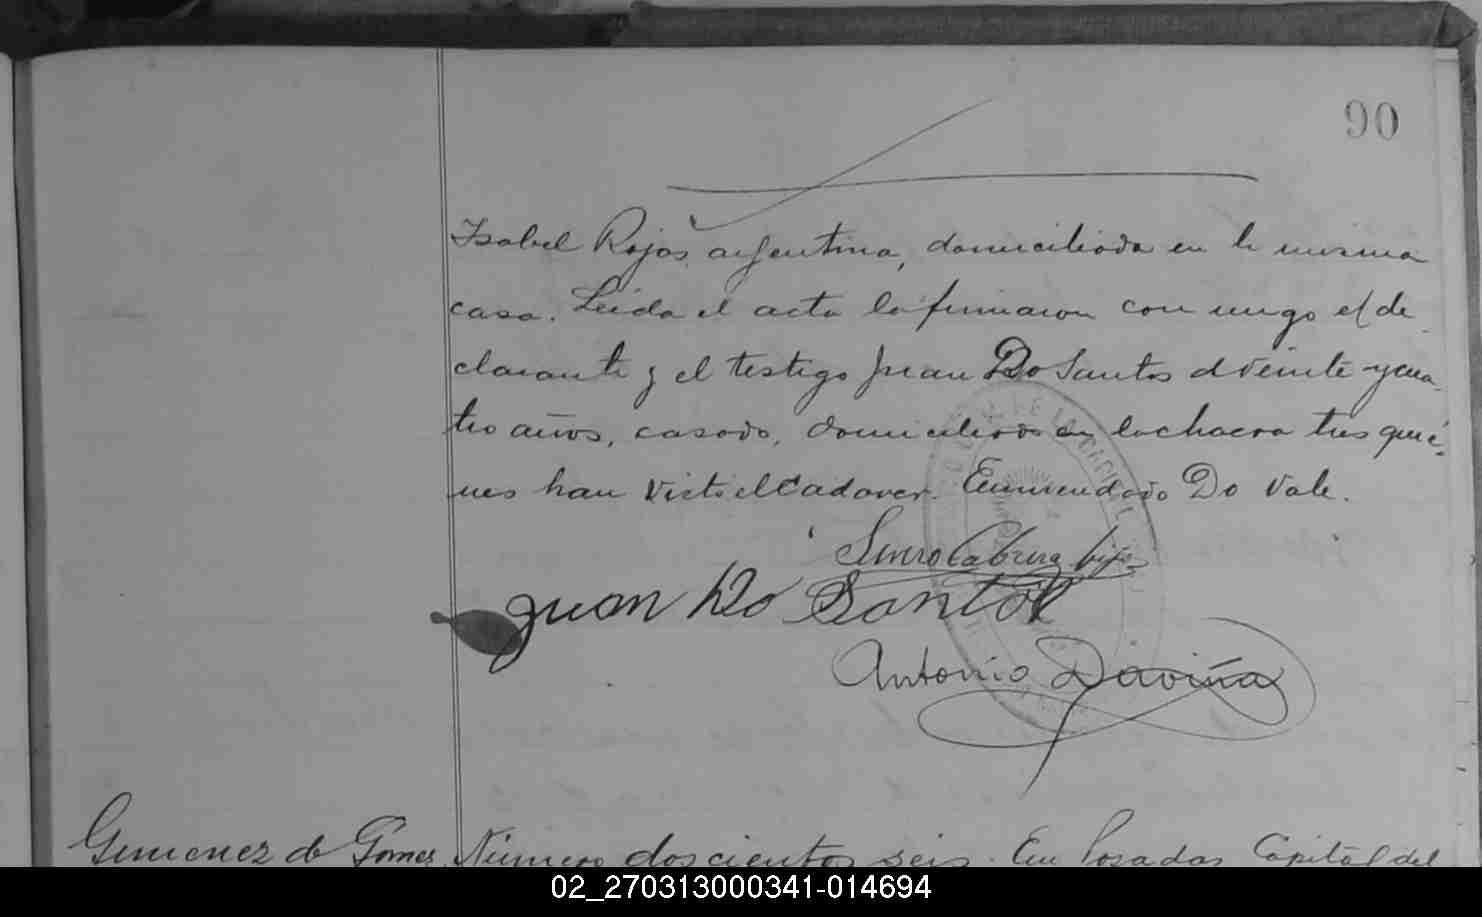 90
Isabel Rojas, argentina, domiciliada en la misma
casa. Leida el acta la firmaron con migo el de
clarante y el testigo Juan Do Santos d veinte y cua
tro años, casado, domiciliado en la chacra tres quie
nes han visto el cadaver. Enmendado Do Vale.
Cabrera hijo
Juan Do Santos
Antonio Daviña
Gimenez de Gomez Número doscientos seis. En Posadas Capital del
02_270313000341-014694